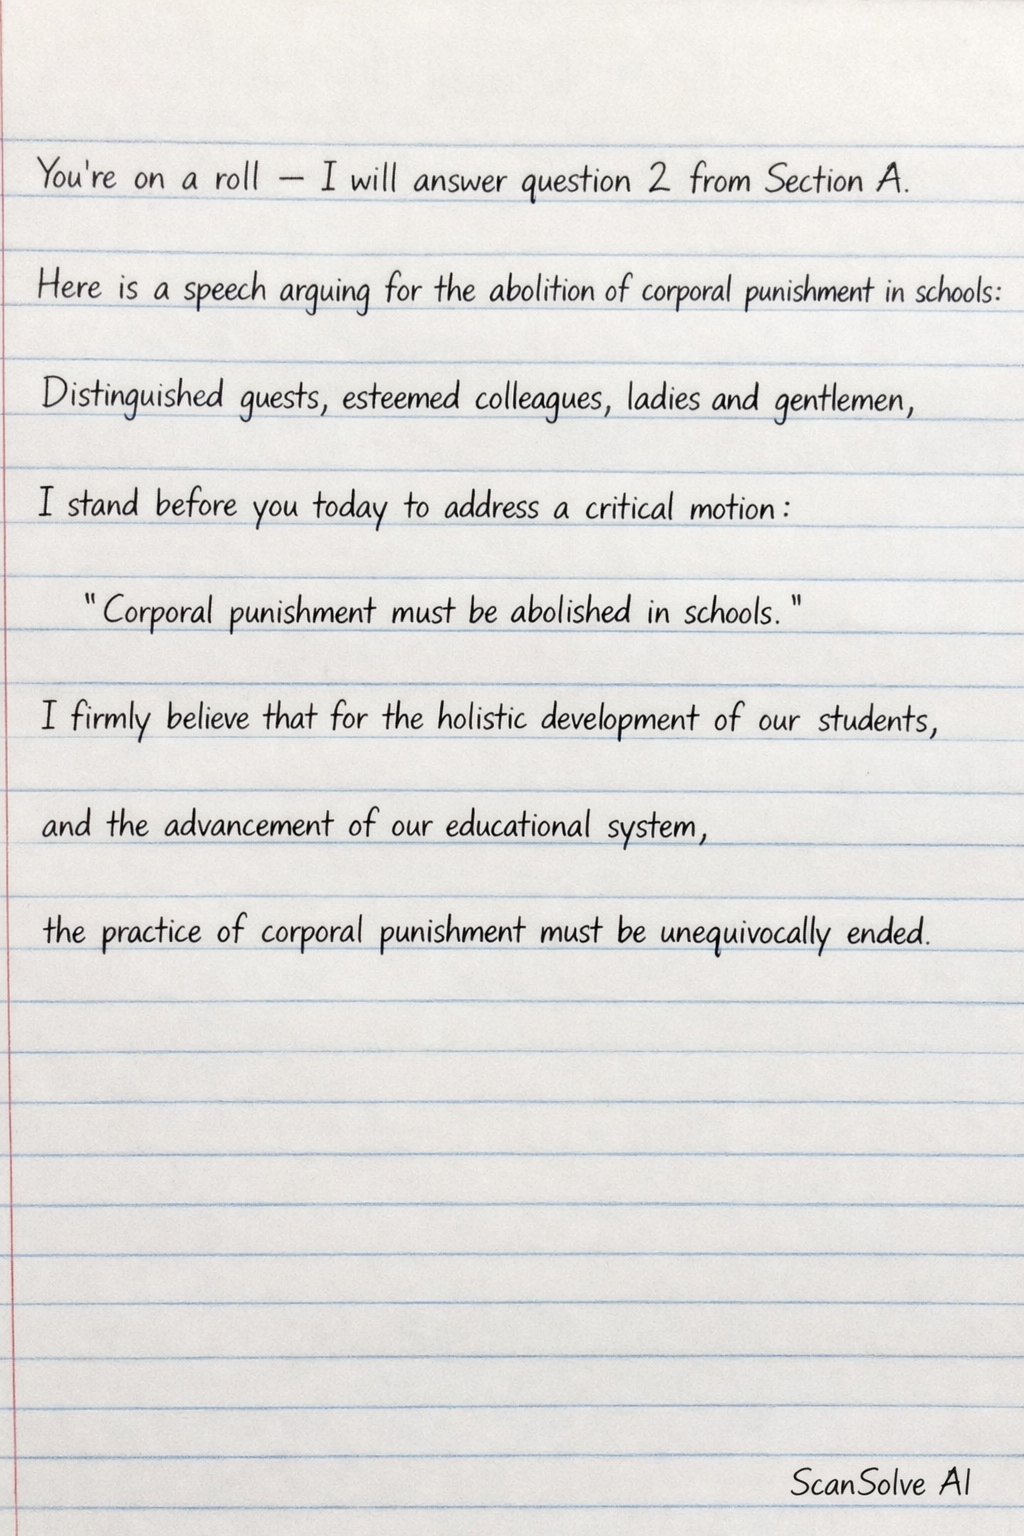 You're on a roll — I will answer question 2 from Section A.
Here is a speech arguing for the abolition of corporal punishment in schools:
Distinguished guests, esteemed colleagues, ladies and gentlemen,
I stand before you today to address a critical motion:
"Corporal punishment must be abolished in schools."
I firmly believe that for the holistic development of our students,
and the advancement of our educational system,
the practice of corporal punishment must be unequivocally ended.
ScanSolve AI